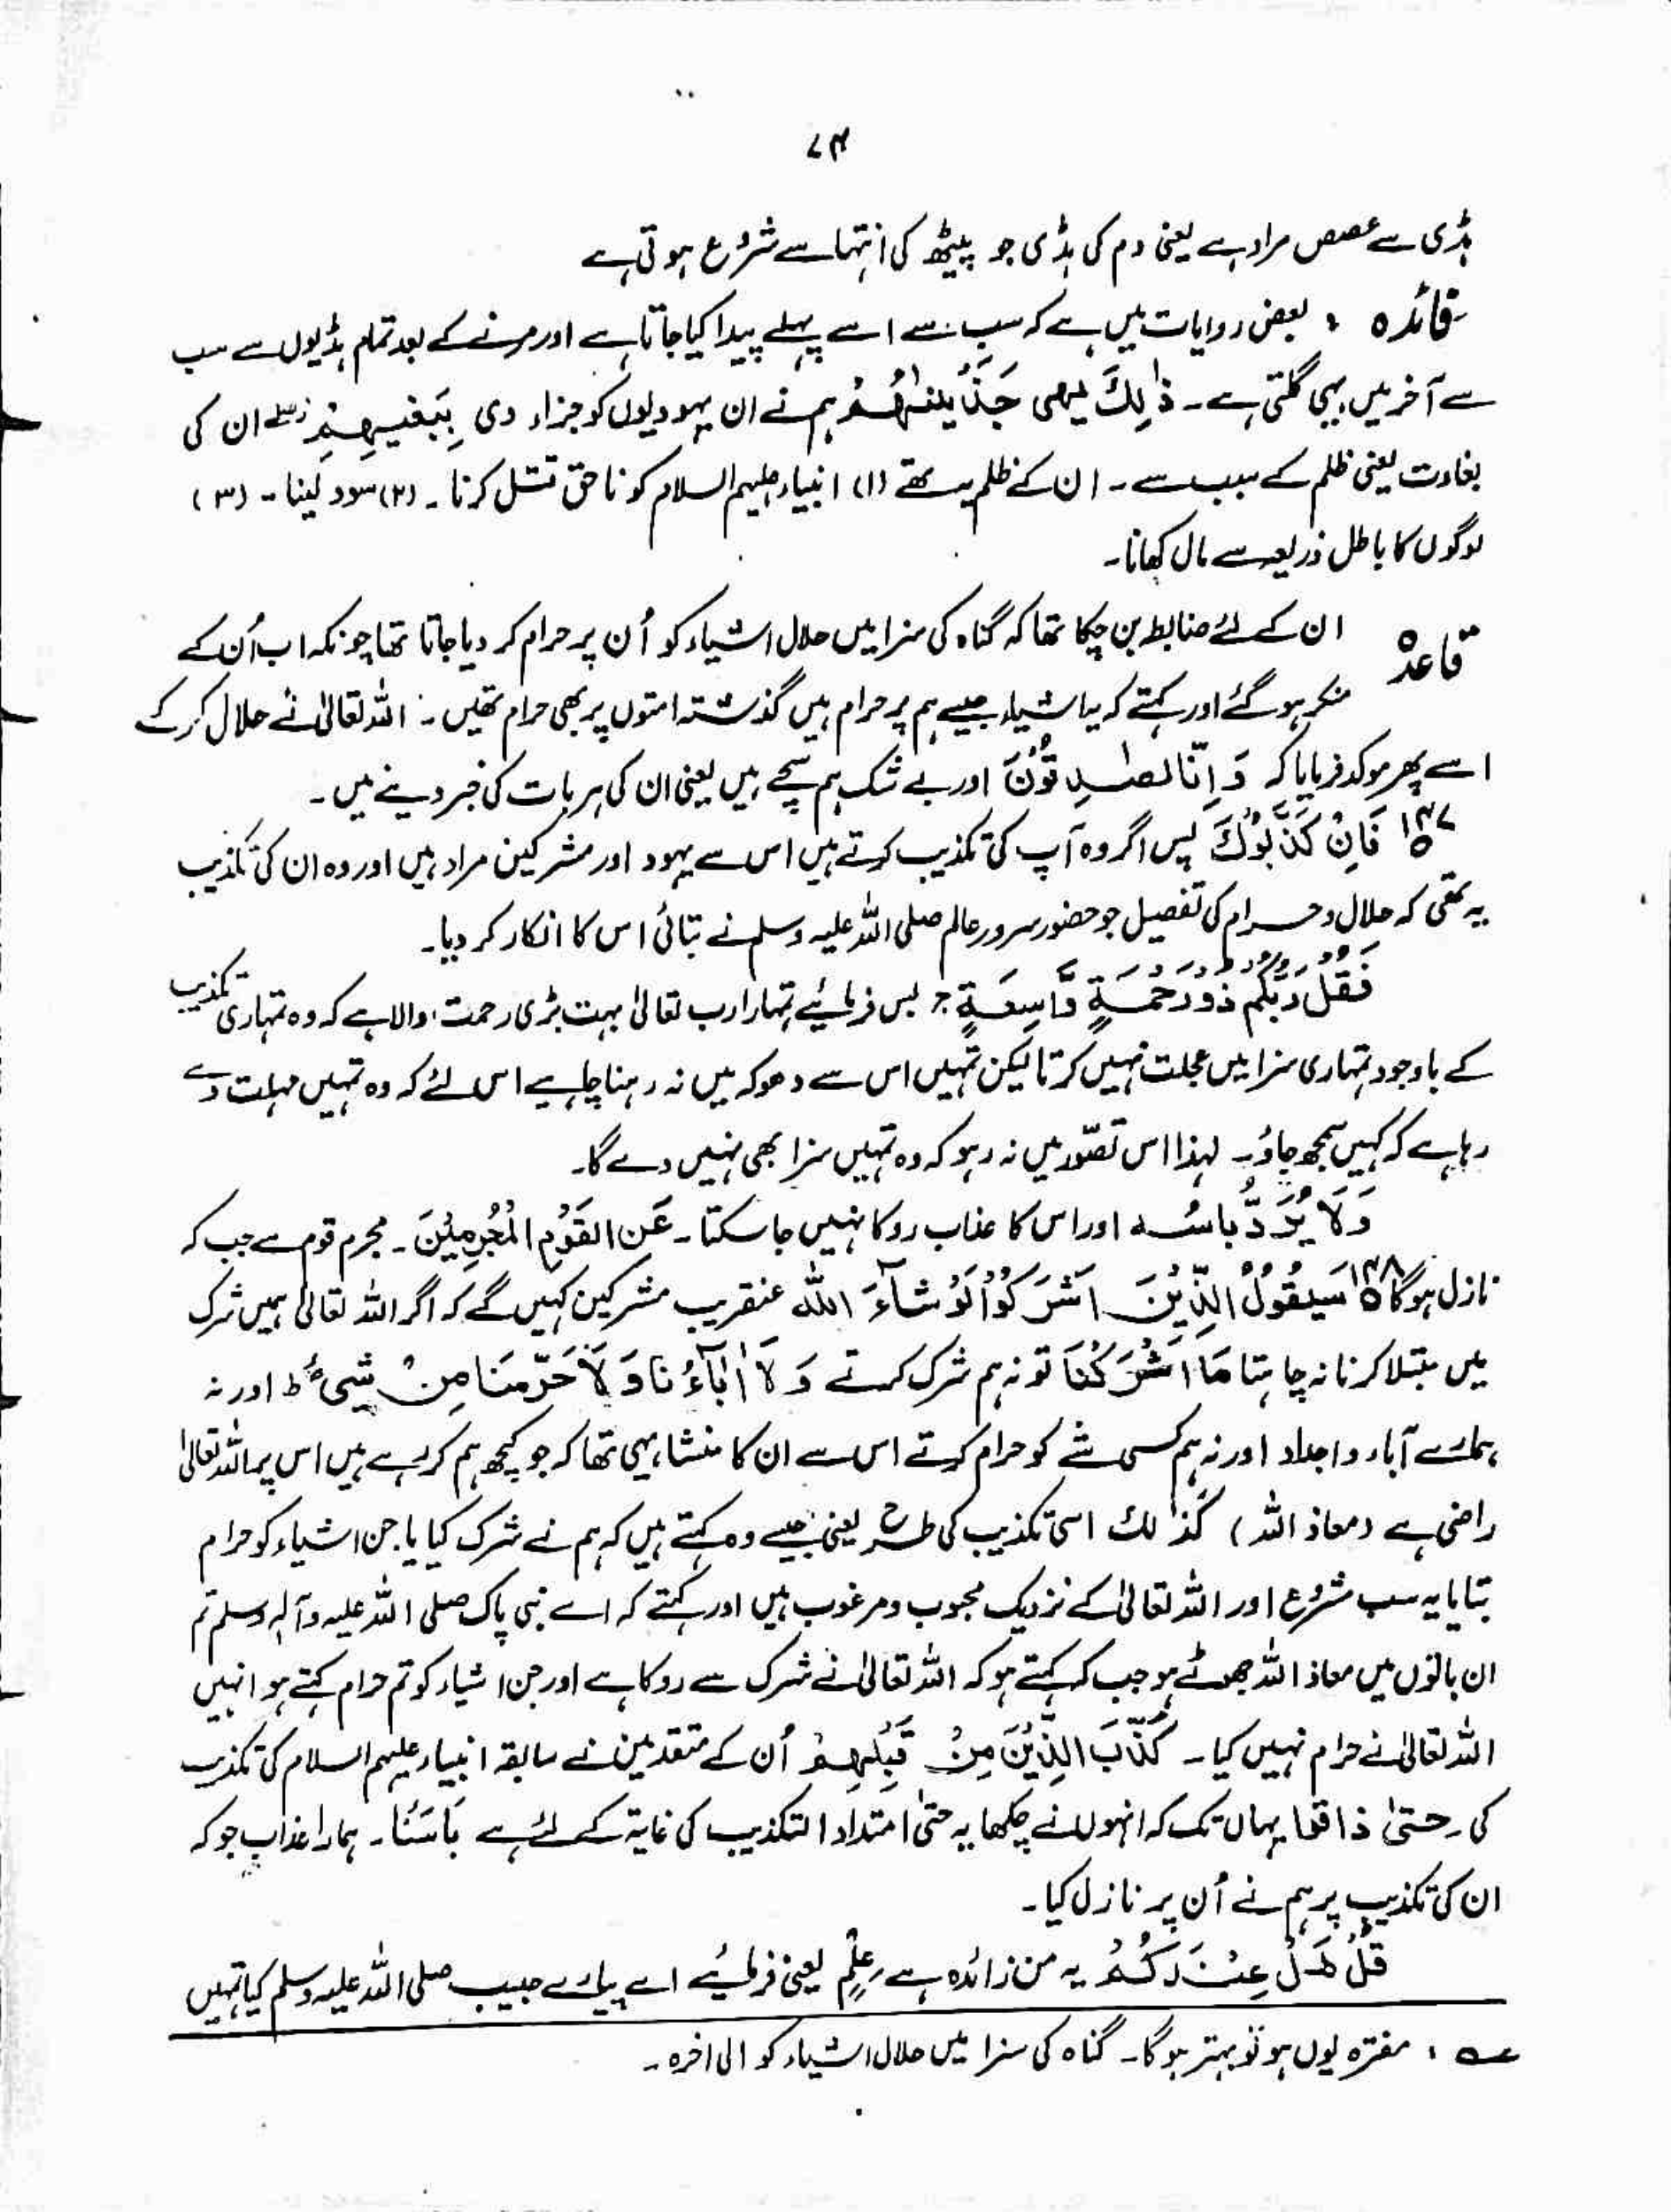 ۷۴
ہڈی سے عصعص مراد ہے یعنی دم کی ہڈی جو پیٹھ کی انتہا سے شروع ہوتی ہے
فائدہ : بعض روایات میں ہے کہ سب سے اسے پہلے پیدا کیا جاتا ہے اور مرنے کے بعد تمام ہڈیوں سے سب
سے آخر میں یہی گلتی ہے۔ ذٰلِكَ یہی جَزَيْنٰهُمْ ہم نے ان یہودیوں کو جزاء دی بِبَغْيِهِمْ ان کی
بغاوت یعنی ظلم کے سبب سے۔ ان کے ظلم یہ تھے (۱) انبیاء علیہم السلام کو ناحق قتل کرنا۔ (۲) سود لینا۔ (۳)
لوگوں کا باطل ذریعہ سے مال کھانا۔
قاعدہ ان کے لئے ضابطہ بن چکا تھا کہ گناہ کی سزا میں حلال اشیاء کو اُن پر حرام کر دیا جاتا تھا چونکہ اب اُن کے
منکر ہو گئے اور کہتے کہ یہ اشیاء جیسے ہم پر حرام ہیں گذشتہ امتوں پر بھی حرام تھیں۔ اللہ تعالیٰ نے حلال کر کے
اسے پھر موکد فرمایا کہ وَ اِنَّا لَصٰدِقُوْنَ اور بے شک ہم سچے ہیں یعنی ان کی ہر بات کی خبر دینے میں۔
۱۴۷ فَاِنْ كَذَّبُوْكَ پس اگر وہ آپ کی تکذیب کرتے ہیں اس سے یہود اور مشرکین مراد ہیں اور وہ ان کی تکذیب
یہ تھی کہ حلال و حرام کی تفصیل جو حضور سرور عالم صلی اللہ علیہ وسلم نے بتائی اس کا انکار کر دیا۔
فَقُلْ رَبُّكُمْ ذُوْ رَحْمَةٍ وَّاسِعَةٍ ج پس فرمائیے تمہارا رب تعالیٰ بہت بڑی رحمت والا ہے کہ وہ تمہاری تکذیب
کے باوجود تمہاری سزا میں عجلت نہیں کرتا لیکن تمہیں اس سے دھوکہ میں نہ رہنا چاہیے اس لئے کہ وہ تمہیں مہلت دے
رہا ہے کہ کہیں سمجھ جاؤ۔ لہذا اس تصوّر میں نہ رہو کہ وہ تمہیں سزا بھی نہیں دے گا۔
وَلَا يُرَدُّ بَاسُهٗ اور اس کا عذاب روکا نہیں جا سکتا۔ عَنِ الْقَوْمِ الْمُجْرِمِيْنَ۔ مجرم قوم سے جب کہ
نازل ہوگا ۱۴۸ سَيَقُوْلُ الَّذِيْنَ اَشْرَكُوْا لَوْ شَآءَ اللّٰهُ عنقریب مشرکین کہیں گے کہ اگر اللہ تعالیٰ ہمیں شرک
میں مبتلا کرنا نہ چاہتا مَا اَشْرَكْنَا تو نہ ہم شرک کرتے وَ لَا اٰبَآؤُنَا وَ لَا حَرَّمْنَا مِنْ شَىْءٍ ط اور نہ
ہمارے آباء و اجداد اور نہ ہم کسی شے کو حرام کرتے اس سے ان کا منشا یہی تھا کہ جو کچھ ہم کر رہے ہیں اس پر اللہ تعالیٰ
راضی ہے (معاذ اللہ) كَذٰلِكَ اسی تکذیب کی طرح یعنی جیسے وہ کہتے ہیں کہ ہم نے شرک کیا یا جن اشیاء کو حرام
بتایا یہ سب مشروع اور اللہ تعالیٰ کے نزدیک محبوب و مرغوب ہیں اور کہتے کہ اے نبی پاک صلی اللہ علیہ وآلہ وسلم تم
ان باتوں میں معاذ اللہ جھوٹے ہو جب کہ کہتے ہو کہ اللہ تعالیٰ نے شرک سے روکا ہے اور جن اشیاء کو تم حرام کہتے ہو انہیں
اللہ تعالیٰ نے حرام نہیں کیا۔ كَذَّبَ الَّذِيْنَ مِنْ قَبْلِهِمْ اُن کے متقدمین نے سابقہ انبیاء علیہم السلام کی تکذیب
کی۔ حتیٰ ذاقوا یہاں تک کہ انہوں نے چکھا یہ حتیٰ امتداد التکذیب کی غایۃ کے لئے ہے بَاسَنَا۔ ہمارا عذاب جو کہ
ان کی تکذیب پر ہم نے اُن پر نازل کیا۔
قُلْ هَلْ عِنْدَكُمْ یہ من زائدہ ہے عِلْمٍ یعنی فرمائیے اے پیارے حبیب صلی اللہ علیہ وسلم کیا تمہیں
؎ : مفقرہ یوں ہو تو بہتر ہوگا۔ گناہ کی سزا میں حلال اشیاء کو الی اخرہ۔